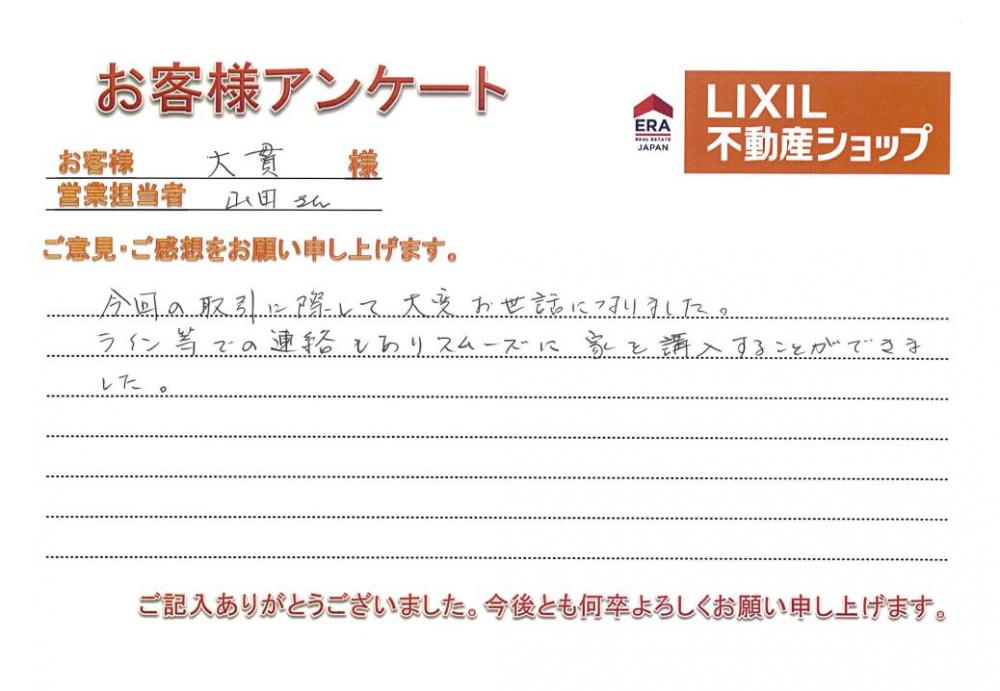 お客様アンケート
ERA
REAL ESTATE
JAPAN
LIXIL
不動産ショップ
お客様 大貫 様
営業担当者 山田 さん
ご意見・ご感想をお願い申し上げます。
今回の取引に際して大変お世話になりました。
ライン等での連絡もありスムーズに家を講入することができま
した。
ご記入ありがとうございました。今後とも何卒よろしくお願い申し上げます。